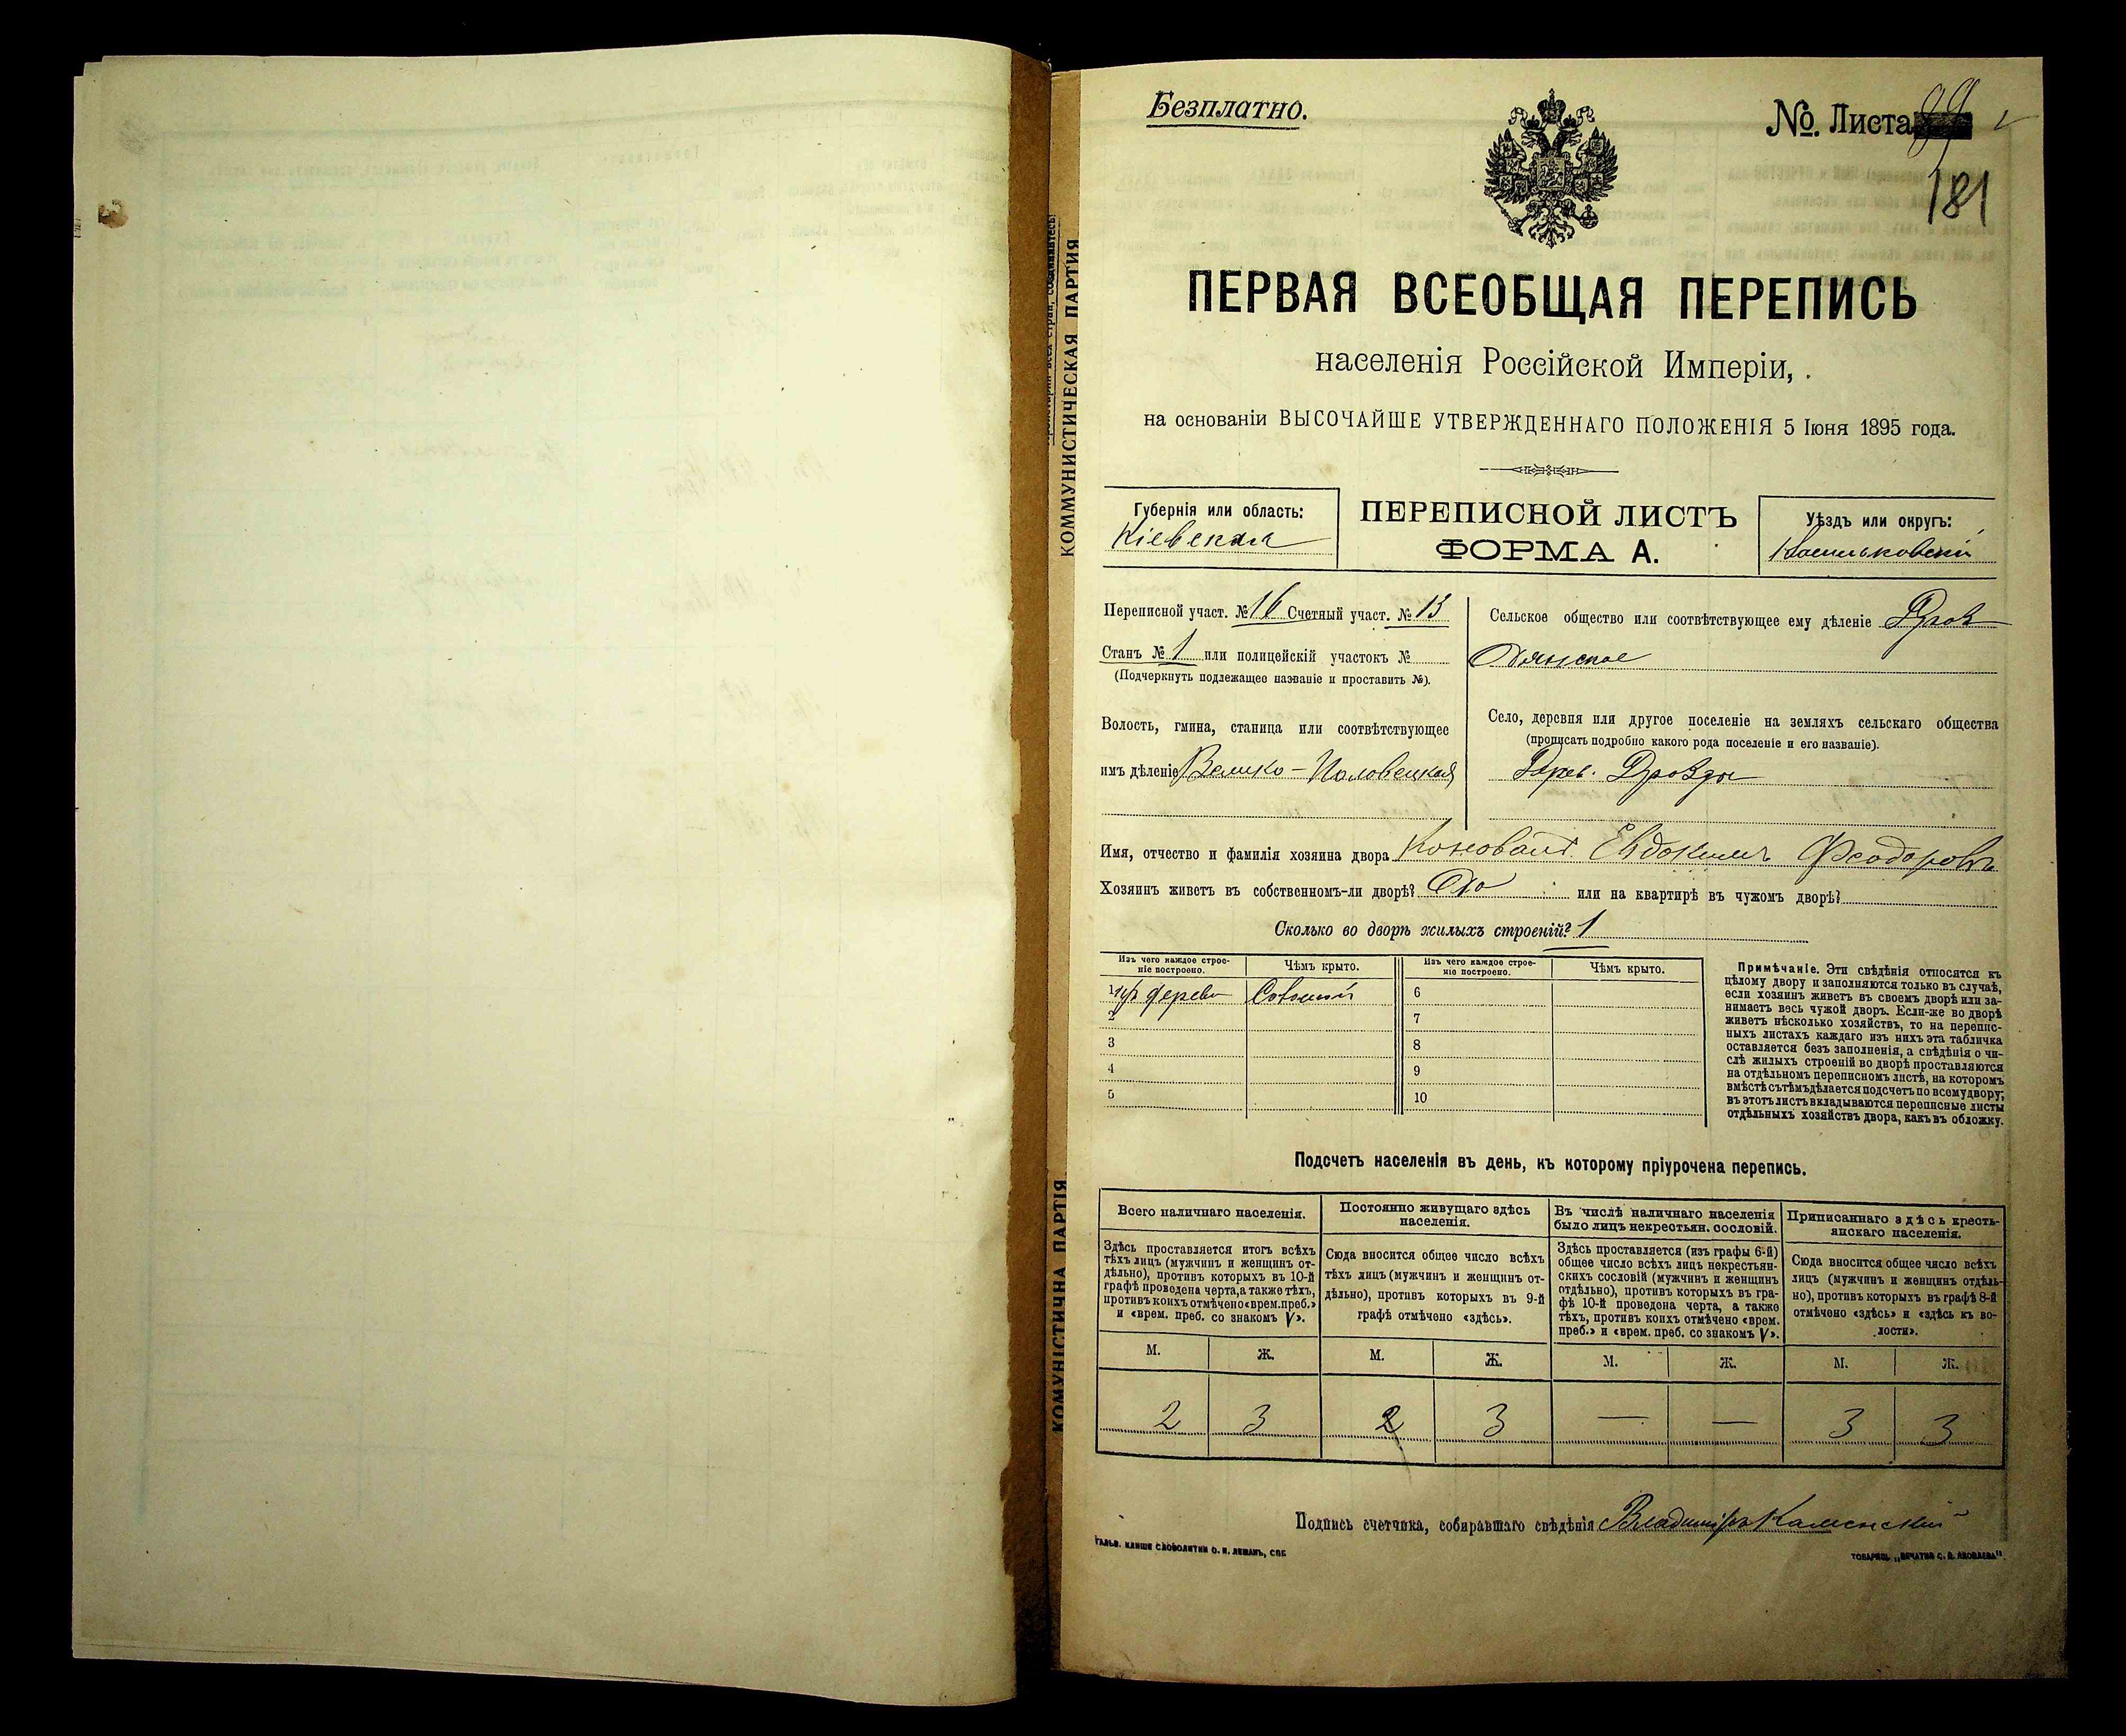 Безплатно.
№. Листа 89
181
ПЕРВАЯ ВСЕОБЩАЯ ПЕРЕПИСЬ
населенія Россійской Имперіи,
на основаніи ВЫСОЧАЙШЕ УТВЕРЖДЕННАГО ПОЛОЖЕНІЯ 5 Іюня 1895 года.
Губернія или область:
Кіевская
ПЕРЕПИСНОЙ ЛИСТЪ
ФОРМА А.
Уѣздъ или округъ:
Васильковскій
Переписной участ. № 16 Счетный участ. № 13
Станъ № 1 или полицейскій участокъ №
(Подчеркнуть подлежащее названіе и проставить №).
Волость, гмина, станица или соотвѣтствующее
имъ дѣленіе Велико-Половецкая
Сельское общество или соотвѣтствующее ему дѣленіе
Село, деревня или другое поселеніе на земляхъ сельскаго общества
(прописать подробно какого рода поселеніе и его названіе).
Дер. Дрозды
Имя, отчество и фамилія хозяина двора Коновалъ Евдокимъ Феодоровъ
Хозяинъ живетъ въ собственномъ-ли дворѣ? Да или на квартирѣ въ чужомъ дворѣ?
Сколько во дворѣ жилыхъ строеній? 1
Изъ чего каждое строеніе построено.
Чѣмъ крыто.
Изъ чего каждое строеніе построено.
Чѣмъ крыто.
1 дерева Соломой
2
3
4
5
6
7
8
9
10
Примѣчаніе. Эти свѣдѣнія относятся къ
цѣлому двору и заполняются только въ случаѣ,
если хозяинъ живетъ въ своемъ дворѣ или за-
нимаетъ весь чужой дворъ. Если-же во дворѣ
живетъ нѣсколько хозяйствъ, то на перепис-
ныхъ листахъ каждаго изъ нихъ эта табличка
оставляется безъ заполненія, а свѣдѣнія о чи-
слѣ жилыхъ строеній во дворѣ проставляются
на отдѣльномъ переписномъ листѣ, на которомъ
вмѣстѣ съ тѣмъ дѣлается подсчетъ по всему двору;
въ этотъ листъ вкладываются переписные листы
отдѣльныхъ хозяйствъ двора, какъ въ обложку.
Подсчетъ населенія въ день, къ которому пріурочена перепись.
Всего наличнаго населенія.
Здѣсь проставляется итогъ всѣхъ
тѣхъ лицъ (мужчинъ и женщинъ от-
дѣльно), противъ которыхъ въ 10-й
графѣ проведена черта, а также тѣхъ,
противъ коихъ отмѣчено «врем. преб.»
и «врем. преб. со знакомъ V».
Постоянно живущаго здѣсь
населенія.
Сюда вносится общее число всѣхъ
тѣхъ лицъ (мужчинъ и женщинъ от-
дѣльно), противъ которыхъ въ 9-й
графѣ отмѣчено «здѣсь».
Въ числѣ наличнаго населенія
было лицъ некрестьян. сословій.
Здѣсь проставляется (изъ графы 6-й)
общее число всѣхъ лицъ некрестьян-
скихъ сословій (мужчинъ и женщинъ
отдѣльно), противъ которыхъ въ гра-
фѣ 10-й проведена черта, а также
тѣхъ, противъ коихъ отмѣчено «врем.
преб.» и «врем. преб. со знакомъ V».
Приписаннаго здѣсь кресть-
янскаго населенія.
Сюда вносится общее число всѣхъ
лицъ (мужчинъ и женщинъ отдѣль-
но), противъ которыхъ въ графѣ 8-й
отмѣчено «здѣсь» и «здѣсь къ во-
лости».
М. Ж. М. Ж. М. Ж. М. Ж.
2 3 2 3 — — 3 3
Подпись счетчика, собиравшаго свѣдѣнія Владиміръ Каменскій
ГАЛЬВ. КЛИШЕ СЛОВОЛИТНИ О. И. ЛЕМАНЪ, СПБ.
ТОВАРИЩ. „ПЕЧАТНЯ С. П. ЯКОВЛЕВА“.
Пролетарии всех стран, соединяйтесь!
КОММУНИСТИЧЕСКАЯ ПАРТИЯ
КОМУНІСТИЧНА ПАРТІЯ